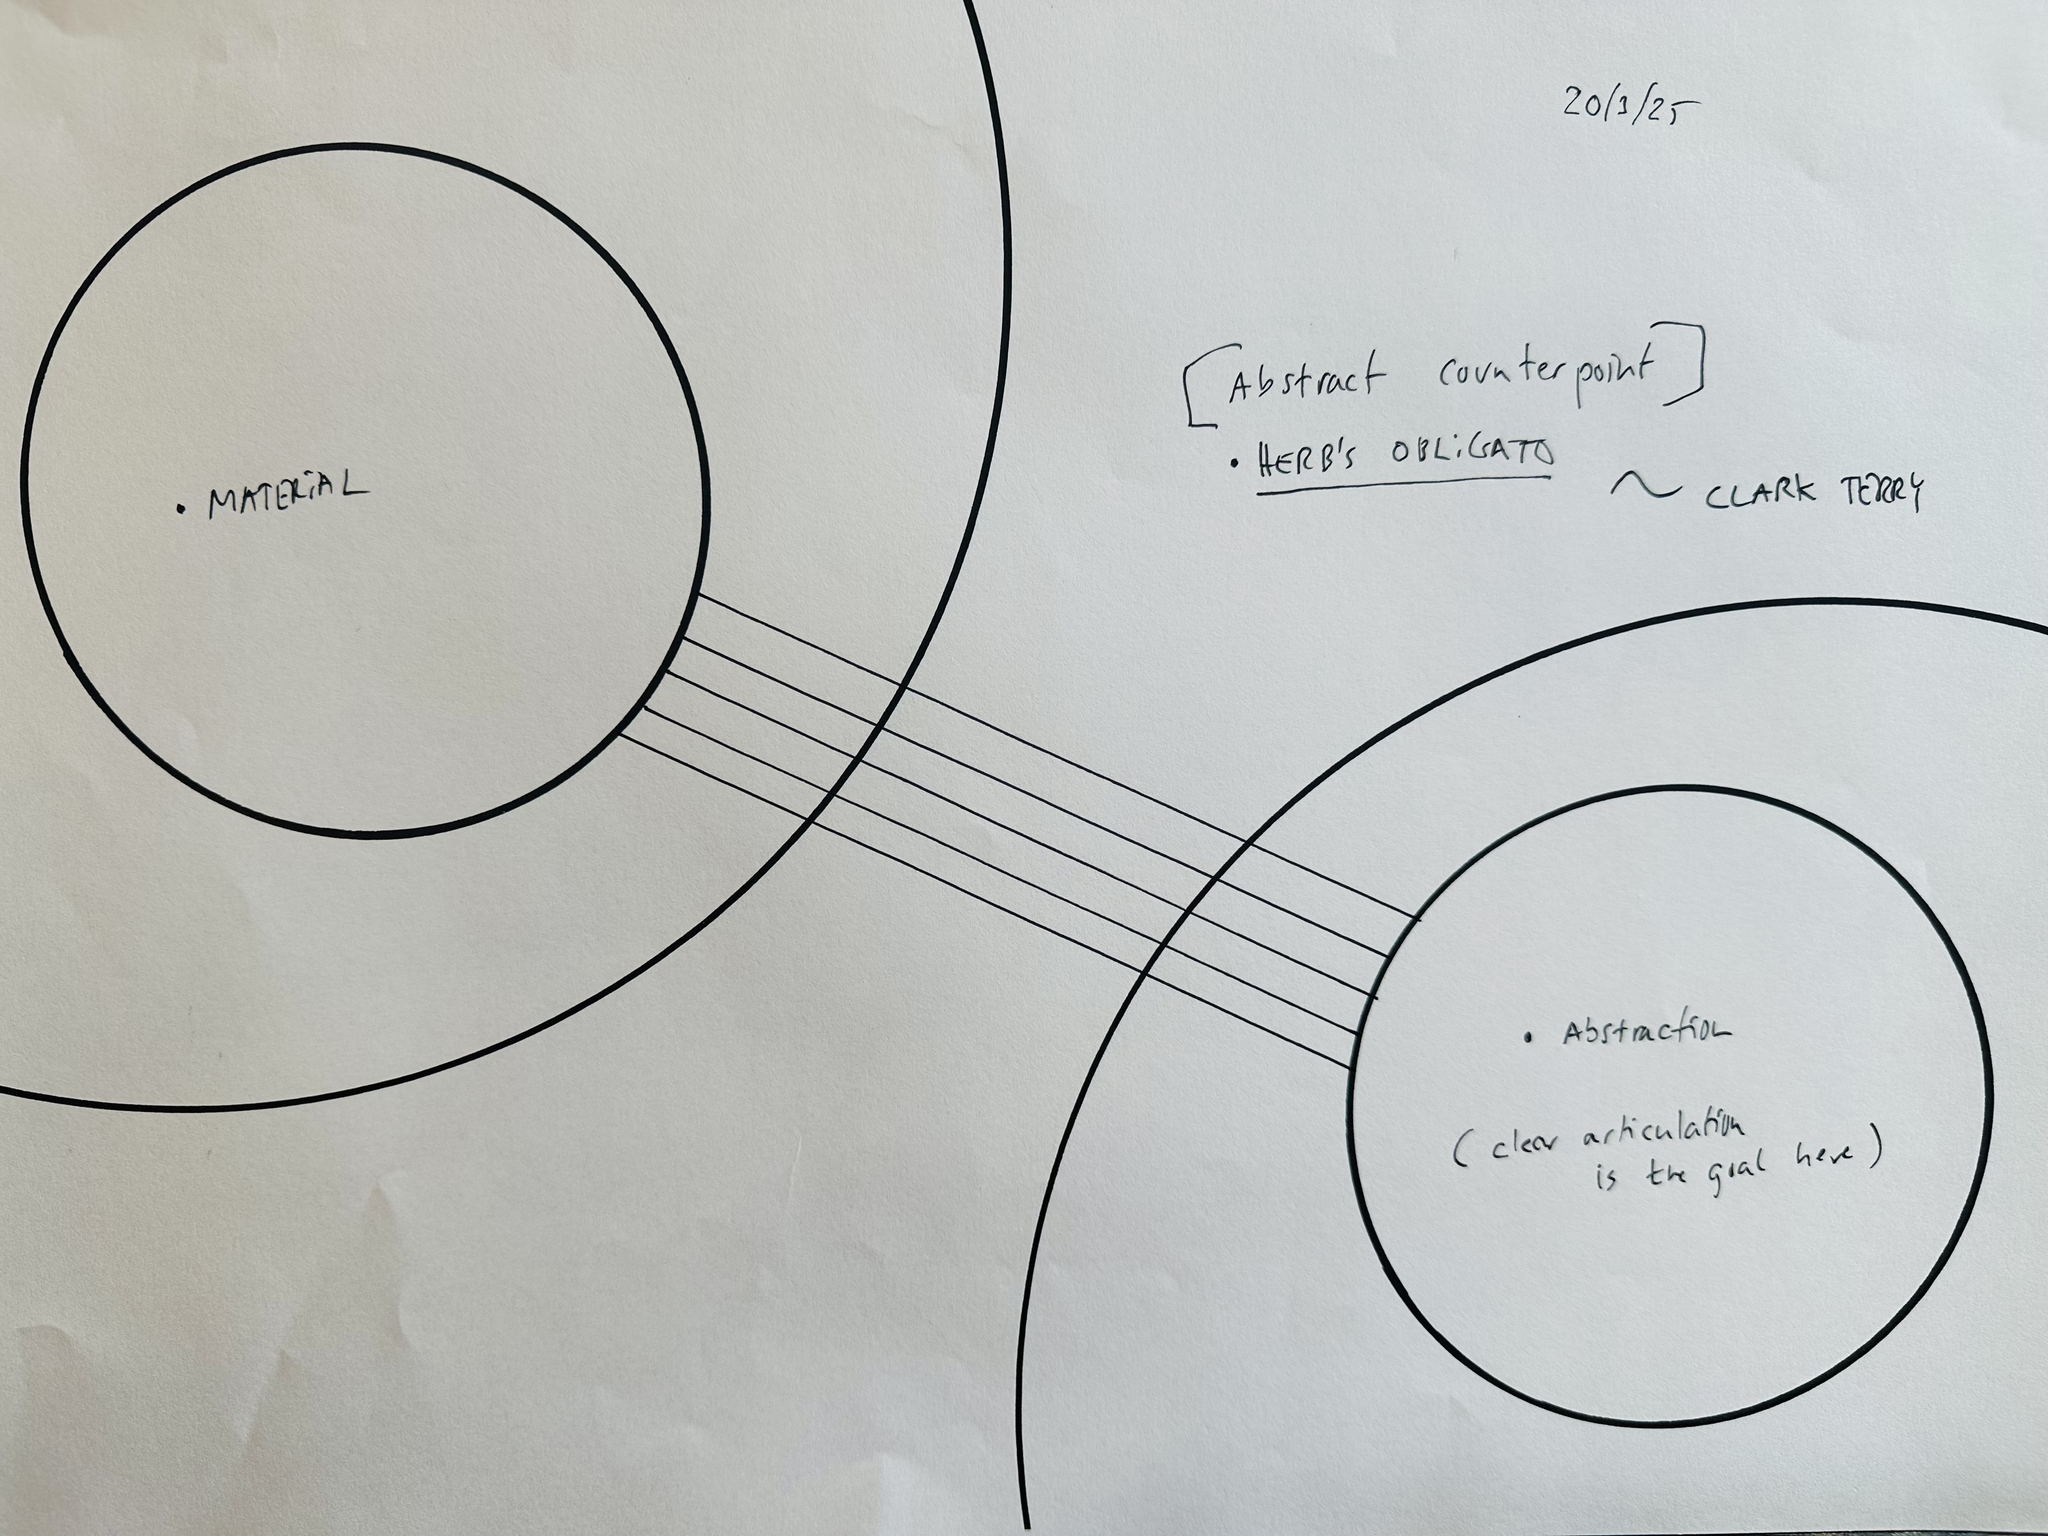 20/3/25
[Abstract counterpoint]
• HERB'S OBLIGATO
~ CLARK TERRY
• MATERIAL
• Abstraction
(clear articulation
is the goal here)